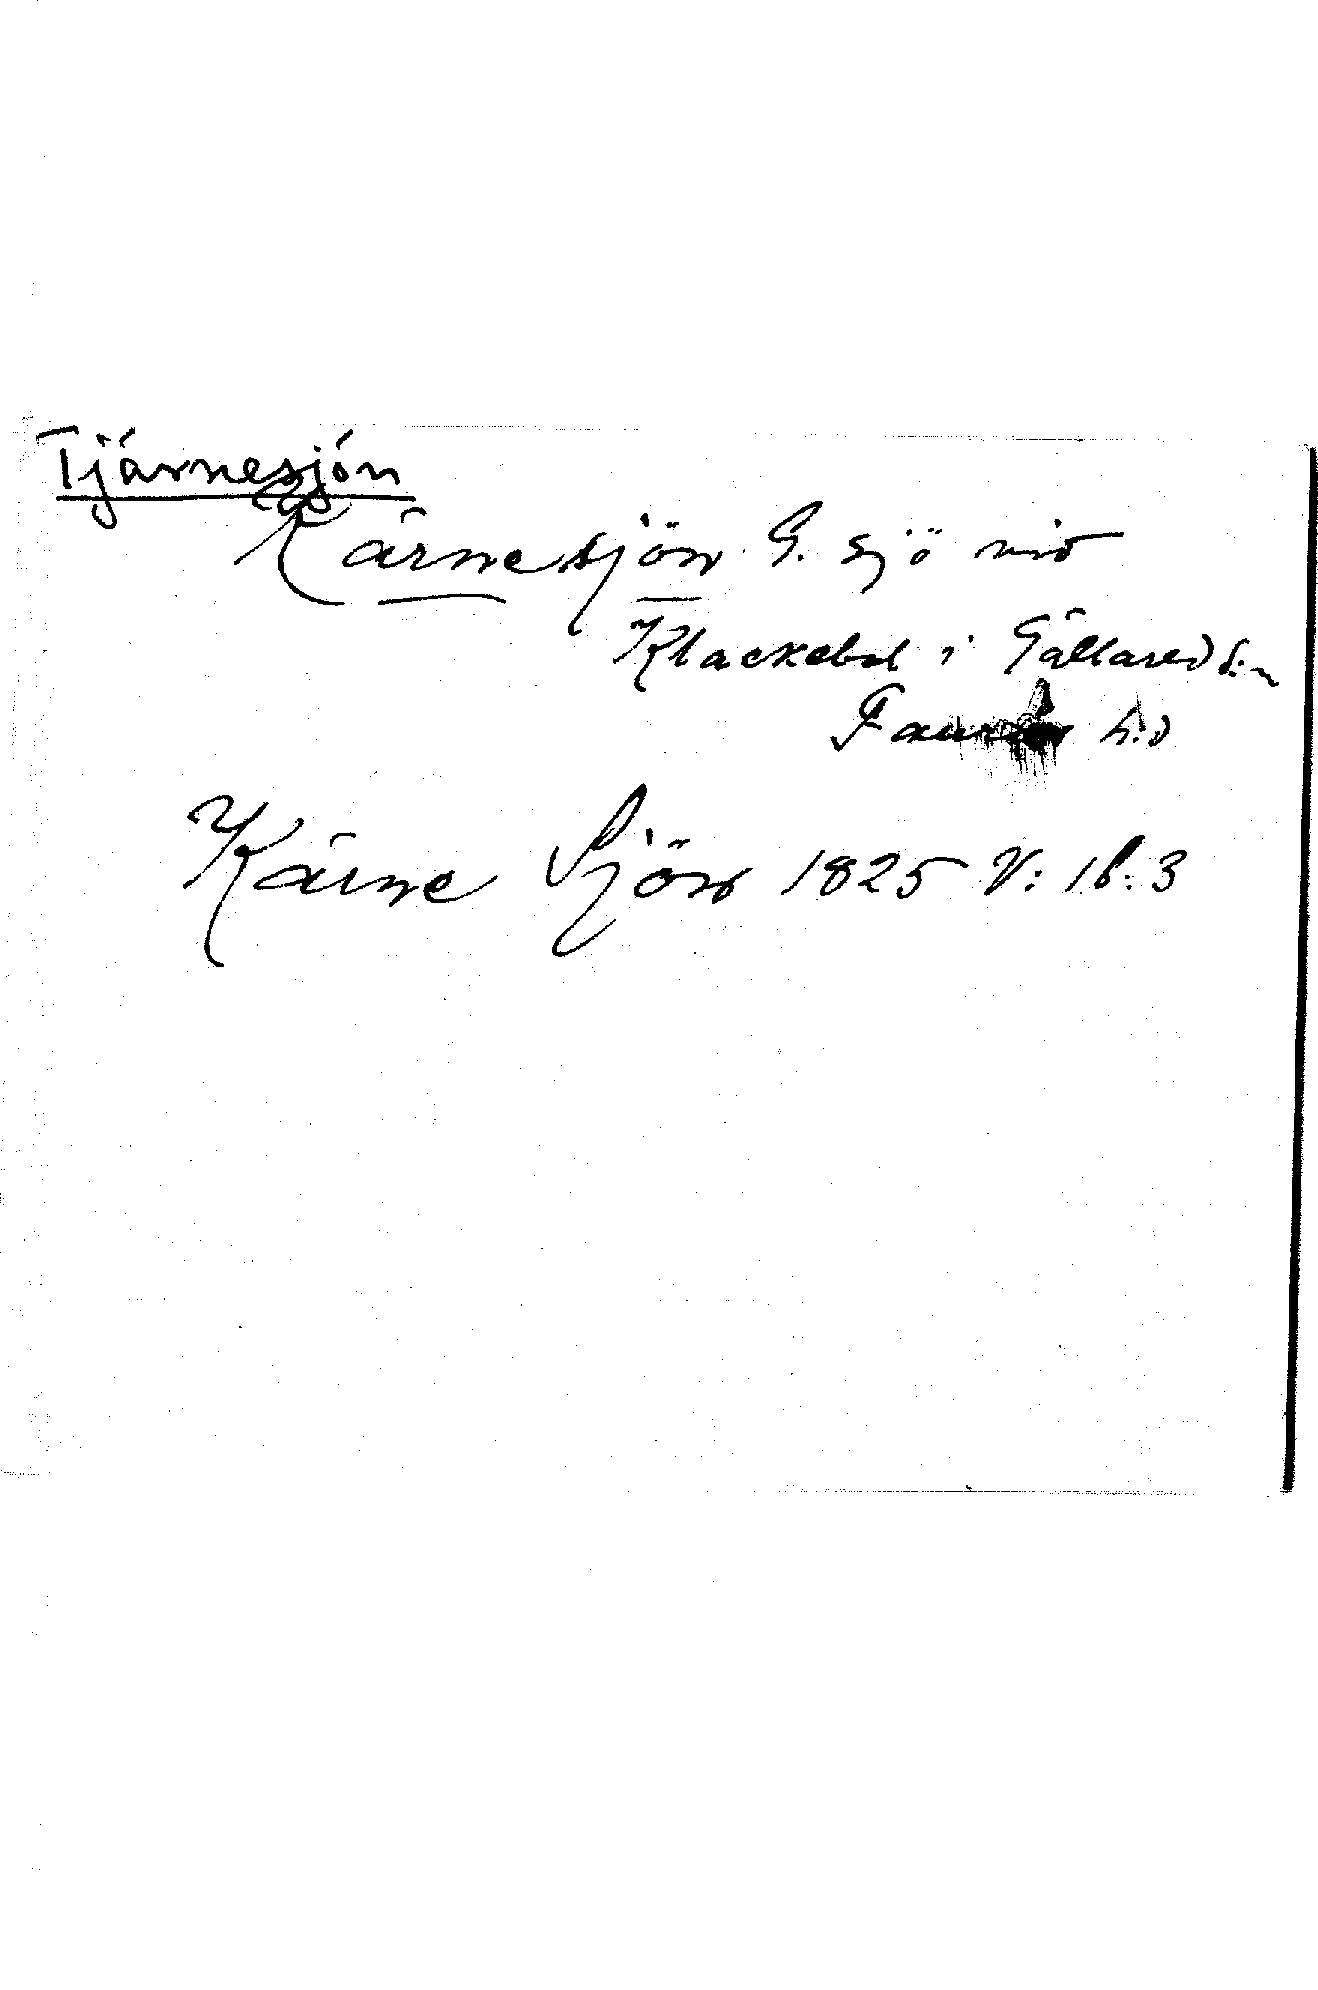 Tjärnesjön
Kärnesjön G. sjö vid
Klackebol i Gällared s:n
Faurås h:d
Kärne Sjön 1825 V: 16: 3